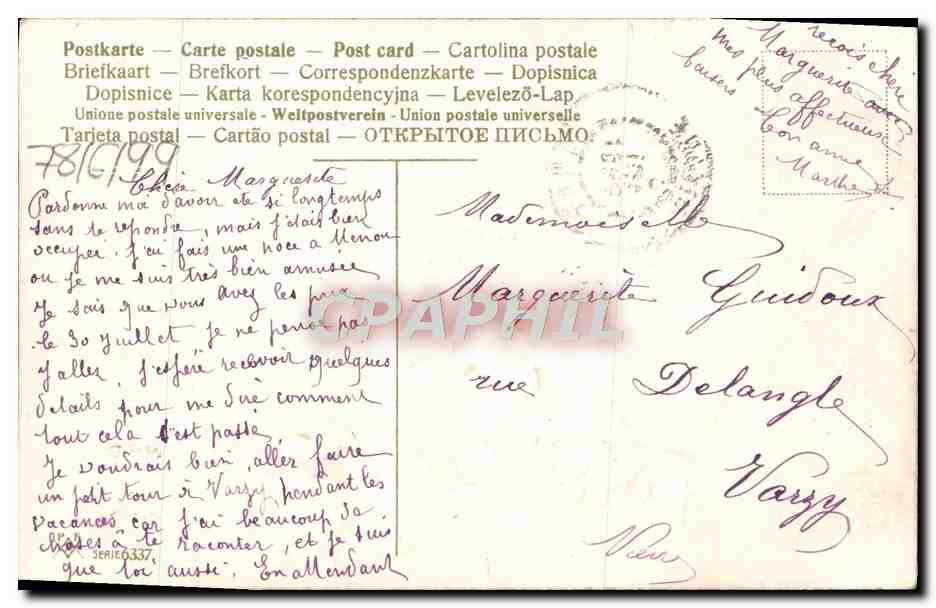 Postkarte — Carte postale — Post card — Cartolina postale
Briefkaart — Brefkort — Correspondenzkarte — Dopisnica
Dopisnice — Karta korespondencyjna — Levelező-Lap
Unione postale universale - Weltpostverein - Union postale universelle
Tarjeta postal — Cartão postal — ОТКРЫТОЕ ПИСЬМО
78/6/99
Chère Marguerite
Pardonne moi d'avoir ete si longtemps
sans te repondre, mais j'étais bien
occupée. J'ai fais une noce a Menou
ou je me suis très bien amusée
Je sais que vous avez les prix
le 30 Juillet je ne pense pas
y aller, j'espère recevoir quelques
details pour me dire comment
tout cela s'est passé
Je voudrais bien aller faire
un petit tour à Varzy pendant les
vacances car j'ai beaucoup de
choses à te raconter, et je suis
que toi aussi. En attendant
SERIE 6337
reçois chère
Marguerite avec
mes plus affectueux
baisers
ton amie
Marthe
Mademoiselle
Marguerite Guidoux
rue Delangle
Varzy
CPAPHIL